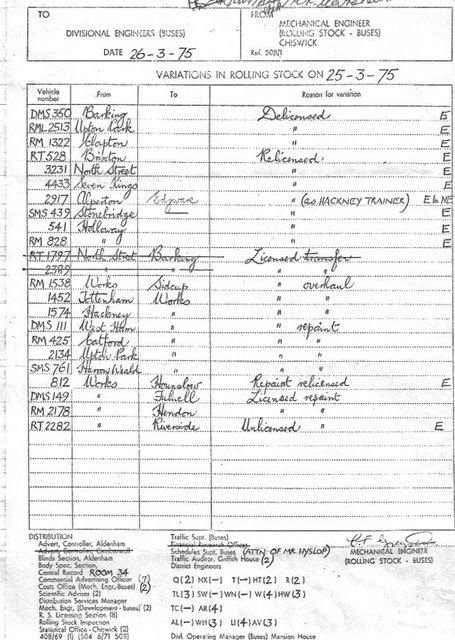 TO
DIVISIONAL ENGINEERS (BUSES)
DATE 26-3-75
FROM
MECHANICAL ENGINEER
(ROLLING STOCK - BUSES)
CHISWICK
Ref. 508/1
VARIATIONS IN ROLLING STOCK ON 25-3-75
Vehicle number From To Reason for variation
DMS 360 Barking Delicensed E
RML 2513 Upton Park " E
RM 1322 Clapton " E
RT 528 Brixton Relicensed E
3231 North Street " E
4433 Seven Kings " E
2917 Alperton Edgware " (as HACKNEY TRAINER) E to NE
SMS 439 Stonebridge — " E
541 Holloway " E
RM 828 " " E
RT 1797 North Street Barking Licensed transfer
2389 " " " "
RM 1538 Works Sidcup " overhaul
1452 Tottenham Works " "
1574 Hackney " " "
DMS 111 West Ham " " repaint
RM 425 Catford " " "
2134 Upton Park " " "
SMS 761 Harrow Weald " " "
812 Works Hounslow Repaint relicensed E
DMS 149 " Fulwell Licensed repaint
RM 2178 " Hendon " "
RT 2282 " Riverside Unlicensed " E
DISTRIBUTION
Advert. Controller, Aldenham
Advert. Controller, Camberwell
Blinds Section, Aldenham
Body Spec. Section,
Central Record ROOM 34
Commercial Advertising Officer (7)
Costs Office (Mech. Engr. Buses) (2)
Scientific Adviser (2)
Distribution Services Manager
Mech. Engr. (Development - Buses) (2)
R. S. Licensing Section (8)
Rolling Stock Inspection
Statistical Office - Chiswick (2)
408/69 (1) (504 6/71 508)
Traffic Supt. (Buses)
Financial Research Officer
Schedules Supt. (Buses) (ATTN. OF MR HYSLOP)
Traffic Auditor, Griffith House (2)
District Engineers
Q (2) NX (-) T (-) HT (2) R (2)
TL (3) SW (-) WN (-) W (4) HW (3)
TC (-) AR (4)
AL (-) WH (3) U (4) AV (3)
Divl. Operating Manager (Buses) Mansion House
MECHANICAL ENGINEER
(ROLLING STOCK - BUSES)